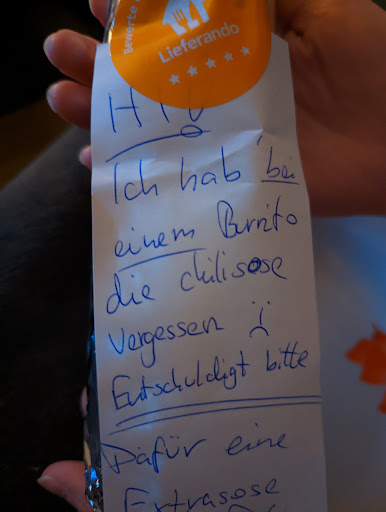 Bewerte
Lieferando
Ich hab' bei
einem Burrito
die chilisose
vergessen :(
Entschuldigt bitte
Dafür eine
Extrasose